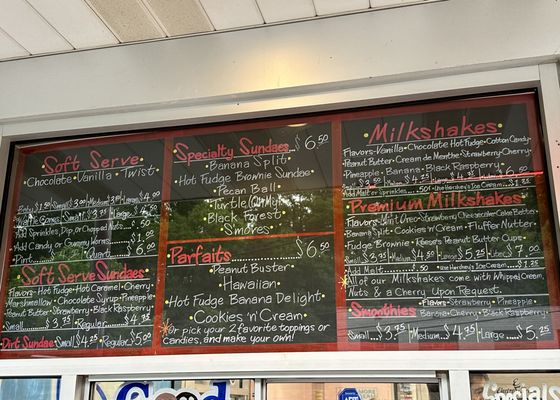 Soft Serve
Chocolate Vanilla Twist
Add Sprinkles, Dip, or Chopped Nuts
Add Candy or Gummy Worms
Pint Quart
Soft Serve Sundaes
Flavors Hot Fudge Hot Caramel Cherry
Marshmallow Chocolate Syrup Pineapple
Peanut Butter Strawberry Black Raspberry
Small $3.75 Regular $4.75
Dirt Sundae Small $4.25 Regular $5.00
Specialty Sundaes $6.50
Banana Split
Hot Fudge Brownie Sundae
Pecan Ball
Turtle (Oh My)
Black Forest
S'mores
Parfaits $6.50
Peanut Buster
Hawaiian
Hot Fudge Banana Delight
Cookies 'n' Cream
Or pick your 2 favorite toppings or
candies, and make your own!
Milkshakes
Flavors Vanilla Chocolate Hot Fudge Cotton Candy
Peanut Butter Creme de Menthe Strawberry Cherry
Pineapple Banana Black Raspberry
Premium Milkshakes
Flavors Mint Oreo Strawberry Cheesecake Cake Batter
Banana Split Cookies 'n' Cream Fluffer Nutter
Fudge Brownie Reese's Peanut Butter Cups
Add Malt .50 use Hershey's Ice Cream $1.25
All of our Milkshakes come with Whipped Cream,
Nuts & a Cherry Upon Request.
Smoothies Flavors Strawberry Pineapple
Banana Cherry Black Raspberry
Small $3.75 Medium $4.75 Large $5.25
Good
Specials